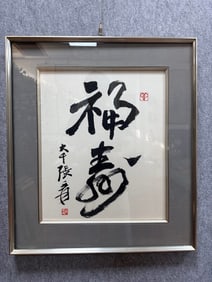 福壽
大千張爰